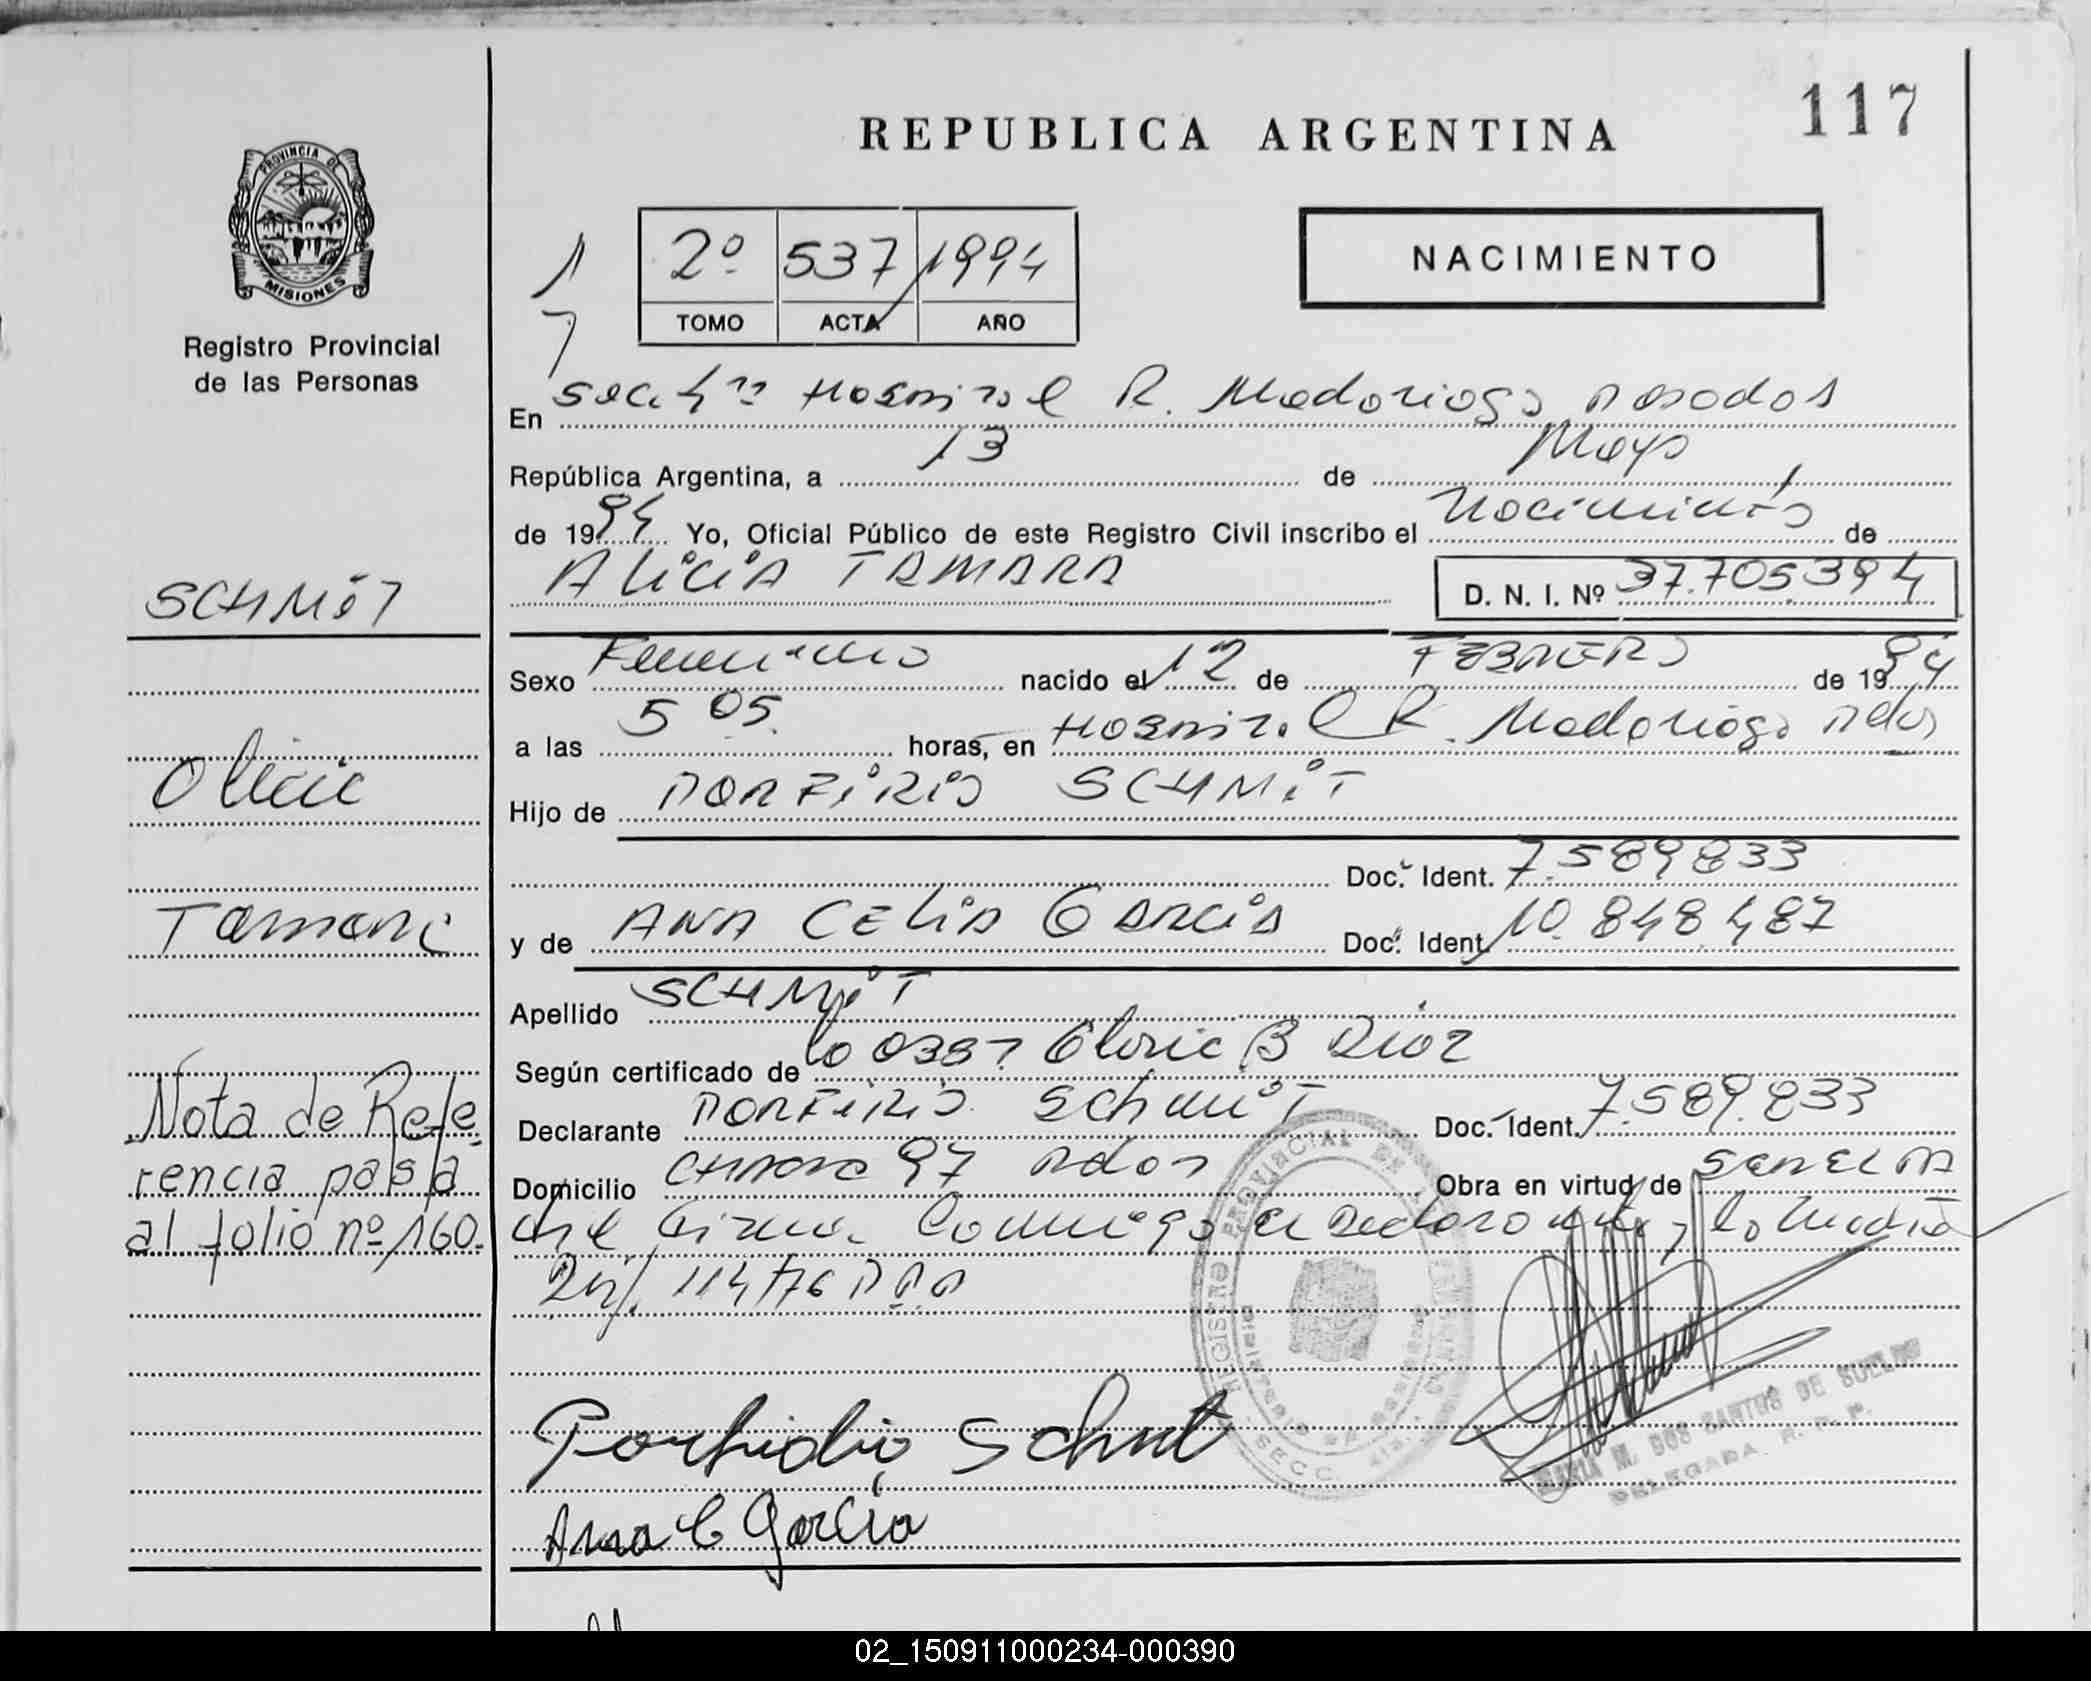 117
REPUBLICA ARGENTINA
PROVINCIA DE
MISIONES
Registro Provincial
de las Personas
NACIMIENTO
1
7
2º 537 1994
TOMO ACTA AÑO
En Secc 4ta Hospital R. Madariaga Posadas
República Argentina, a 13 de Mayo
de 1994 Yo, Oficial Público de este Registro Civil inscribo el Nacimiento de
ALiCiA TAMARA D. N. I. Nº 37.705.394
SCHMiT
Sexo Femenino nacido el 12 de FEBRERO de 1994
a las 5 05 horas, en Hospital R. Madariaga Pdas
Alicia
Hijo de PORFiRiO SCHMiT
Doc. Ident. 7.589833
Tamara
y de ANA CELiA GARCiA Doc. Ident. 10.848.487
Apellido SCHMiT
Según certificado de Gloria B Diaz
Declarante PORFiRiO Schmit Doc. Ident. 7.589.833
Domicilio Chacra 97 Pdas Obra en virtud de
Nota de Refe
rencia pasa
al folio nº 160.
firma Conmigo el Declarante y la Madre
114/76
Porfidio Schmit
Ana C García
REGISTRO PROVINCIAL DE
SECC.
MARIA M. DOS SANTOS DE
DELEGADA R. P. P.
02_150911000234-000390